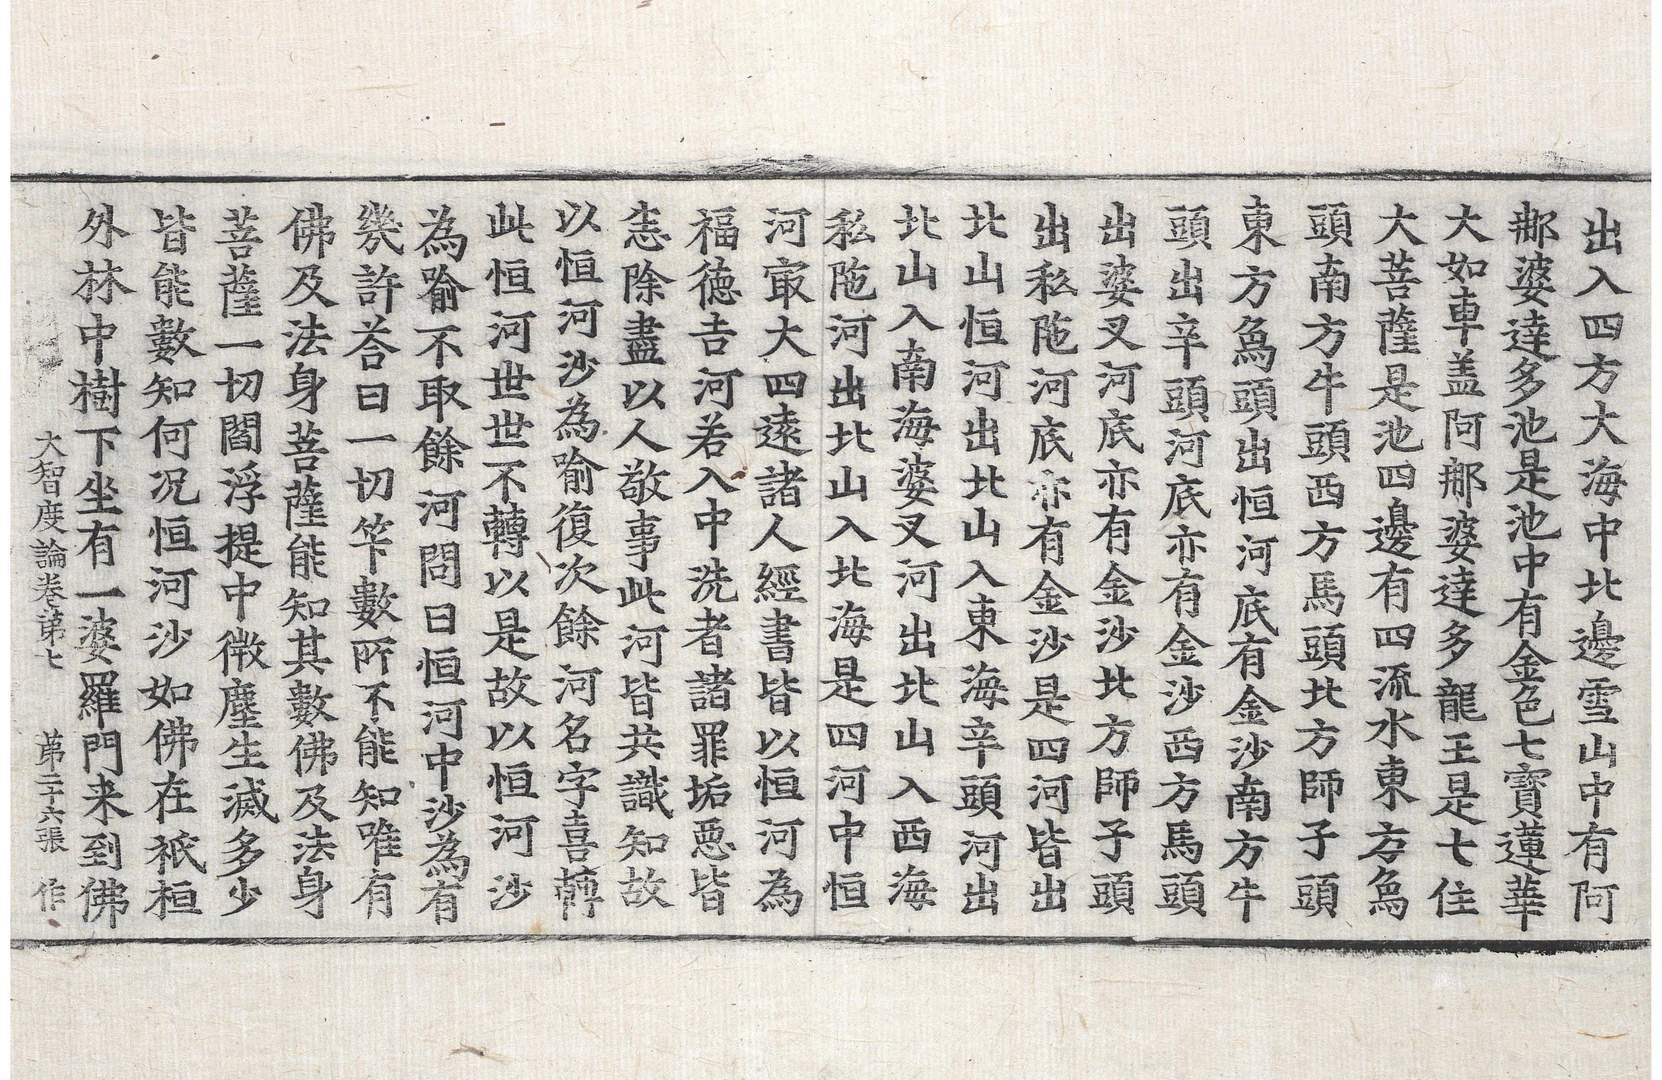 出入四方大海中北邊雪山中有阿
那婆達多池是池中有金色七寶蓮華
大如車盖阿那婆達多龍王是七住
大菩薩是池四邊有四流水東方象
頭南方牛頭西方馬頭北方師子頭
東方象頭出恒河底有金沙南方牛
頭出辛頭河底亦有金沙西方馬頭
出婆叉河底亦有金沙北方師子頭
出私陁河底亦有金沙是四河皆出
北山恒河出北山入東海辛頭河出
北山入南海婆叉河出北山入西海
私陁河出北山入北海是四河中恒
河㝡大四遠諸人經書皆以恒河為
福德吉河若入中洗者諸罪垢悪皆
悉除盡以人敬事此河皆共識知故
以恒河沙為喻復次餘河名字喜轉
此恒河世世不轉以是故以恒河沙
為喻不取餘河問曰恒河中沙為有
幾許荅曰一切筭數所不能知唯有
佛及法身菩薩能知其數佛及法身
菩薩一切閻浮提中微塵生滅多少
皆能數知何况恒河沙如佛在祇桓
外林中樹下坐有一婆羅門来到佛
大智度論卷第七　第二十六張　作